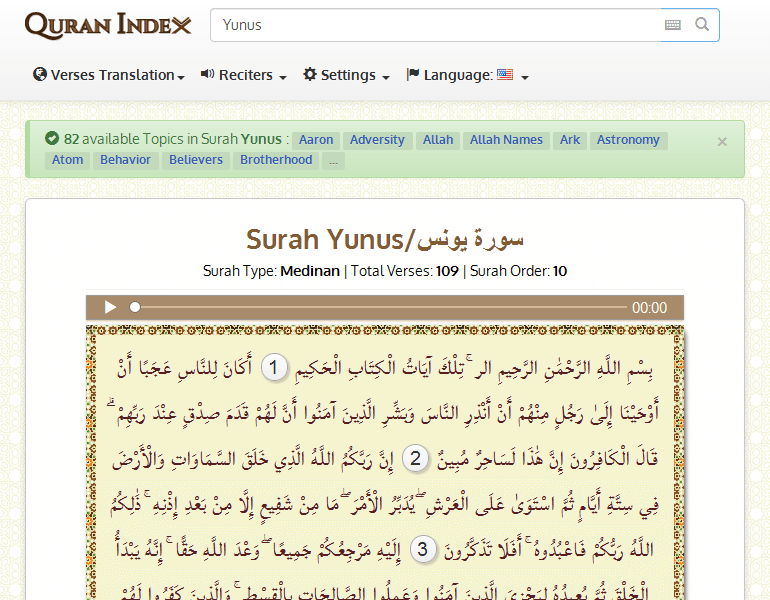 Quran Index
Yunus
Verses Translation
Reciters
Settings
Language:
82 available Topics in Surah Yunus : Aaron Adversity Allah Allah Names Ark Astronomy ×
Atom Behavior Believers Brotherhood ...
Surah Yunus/سورة يونس
Surah Type: Medinan | Total Verses: 109 | Surah Order: 10
00:00
بِسْمِ اللَّهِ الرَّحْمَٰنِ الرَّحِيمِ الر ۚ تِلْكَ آيَاتُ الْكِتَابِ الْحَكِيمِ 1 أَكَانَ لِلنَّاسِ عَجَبًا أَنْ
أَوْحَيْنَا إِلَىٰ رَجُلٍ مِنْهُمْ أَنْ أَنْذِرِ النَّاسَ وَبَشِّرِ الَّذِينَ آمَنُوا أَنَّ لَهُمْ قَدَمَ صِدْقٍ عِنْدَ رَبِّهِمْ ۗ
قَالَ الْكَافِرُونَ إِنَّ هَٰذَا لَسَاحِرٌ مُبِينٌ 2 إِنَّ رَبَّكُمُ اللَّهُ الَّذِي خَلَقَ السَّمَاوَاتِ وَالْأَرْضَ
فِي سِتَّةِ أَيَّامٍ ثُمَّ اسْتَوَىٰ عَلَى الْعَرْشِ ۖ يُدَبِّرُ الْأَمْرَ ۖ مَا مِنْ شَفِيعٍ إِلَّا مِنْ بَعْدِ إِذْنِهِ ۚ ذَٰلِكُمُ
اللَّهُ رَبُّكُمْ فَاعْبُدُوهُ ۚ أَفَلَا تَذَكَّرُونَ 3 إِلَيْهِ مَرْجِعُكُمْ جَمِيعًا ۖ وَعْدَ اللَّهِ حَقًّا ۚ إِنَّهُ يَبْدَأُ
الْخَلْقَ ثُمَّ يُعِيدُهُ لِيَجْزِيَ الَّذِينَ آمَنُوا وَعَمِلُوا الصَّالِحَاتِ بِالْقِسْطِ ۚ وَالَّذِينَ كَفَرُوا لَهُمْ